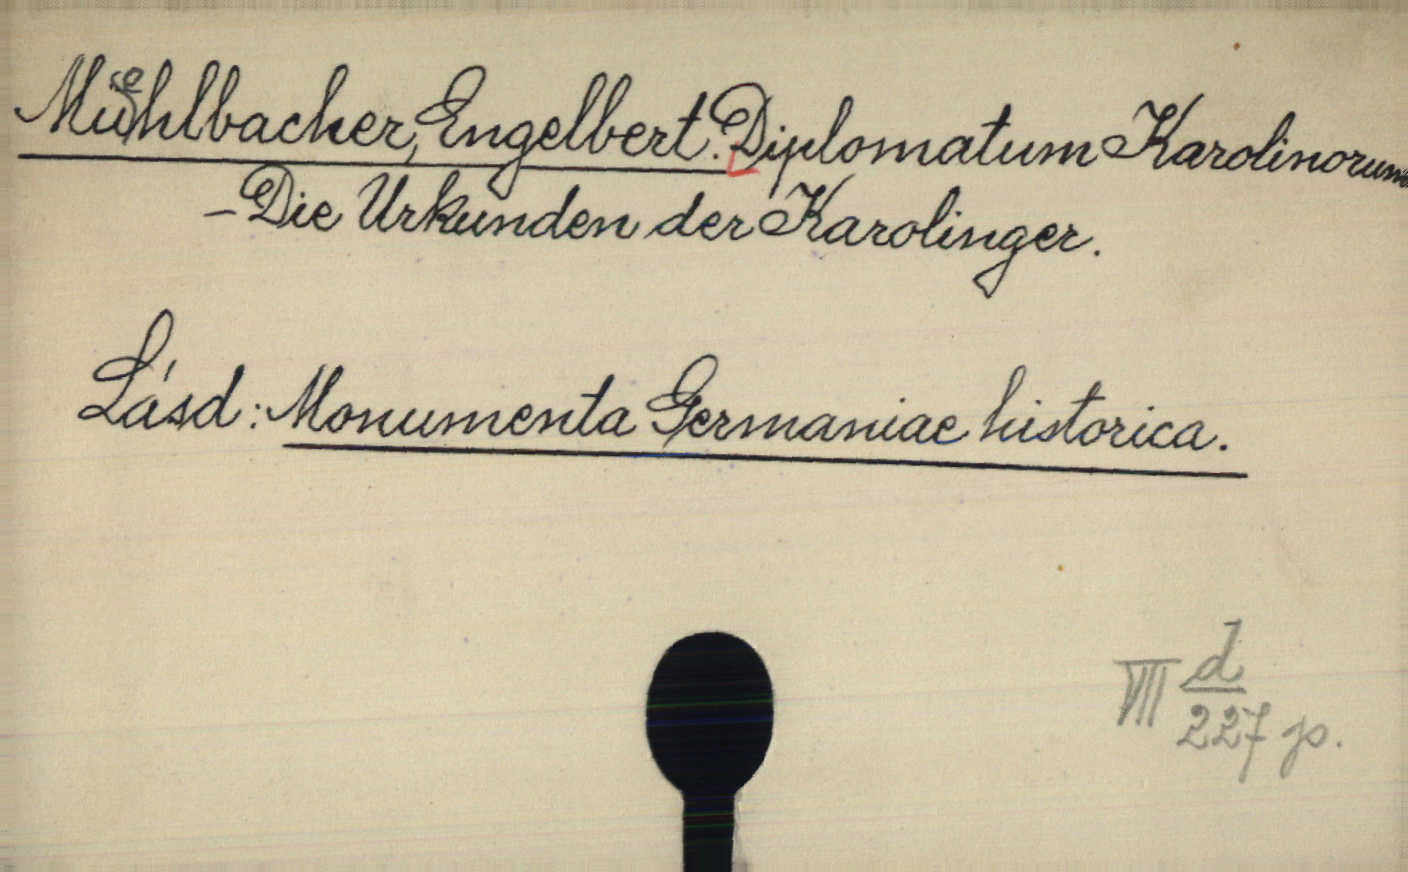 Muehlbacher, Engelbert. Diplomatum Karolinorum
– Die Urkunden der Karolinger.
Lásd: Monumenta Germaniae historica.
VIII d/227 p.